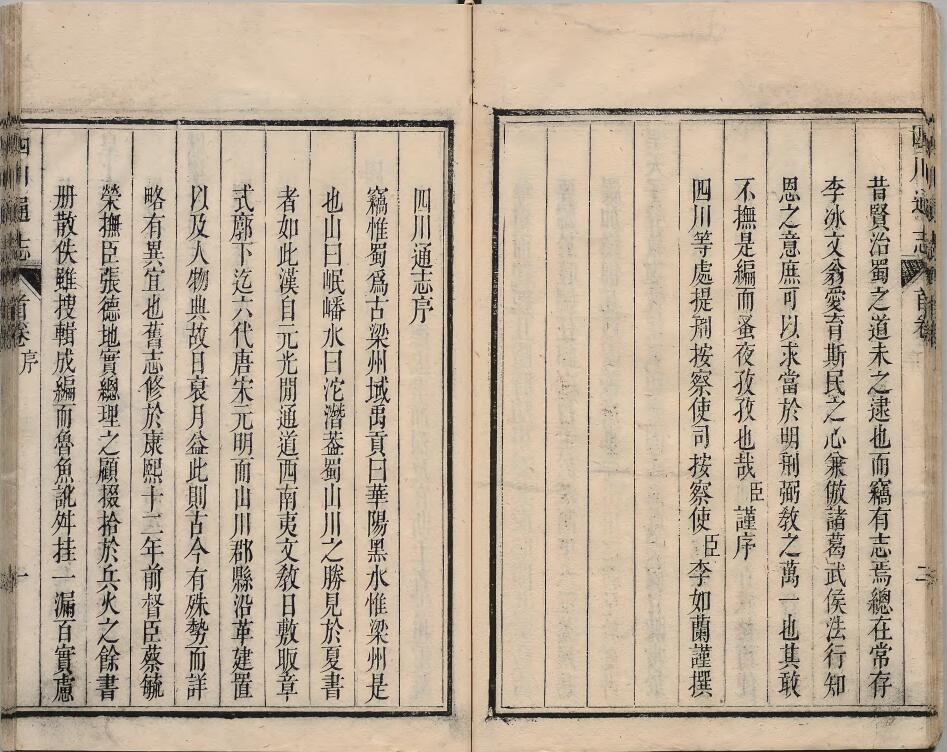 昔賢治蜀之道未之逮也而竊有志焉總在常存
李冰文翁愛育斯民之心兼倣諸葛武侯法行知
恩之意庶可以求當於明刑弼敎之萬一也其敢
不撫是編而蚤夜孜孜也哉臣謹序
四川等處提刑按察使司按察使臣李如蘭謹撰
四川通志序
竊惟蜀爲古梁州域禹貢曰華陽黑水惟梁州是
也山曰岷嶓水曰沱濳葢蜀山川之勝見於夏書
者如此漢自元光閒通道西南夷文敎日敷版章
式廓下迄六代唐宋元明而山川郡縣沿革建置
以及人物典故日裒月益此則古今有殊勢而詳
略有異宜也舊志修於康熙十二年前督臣蔡毓
榮撫臣張德地實總理之顧掇拾於兵火之餘書
册散佚雖搜輯成編而魯魚訛舛挂一漏百實慮
四川通志
首卷
序
一
四川通志
首卷
二